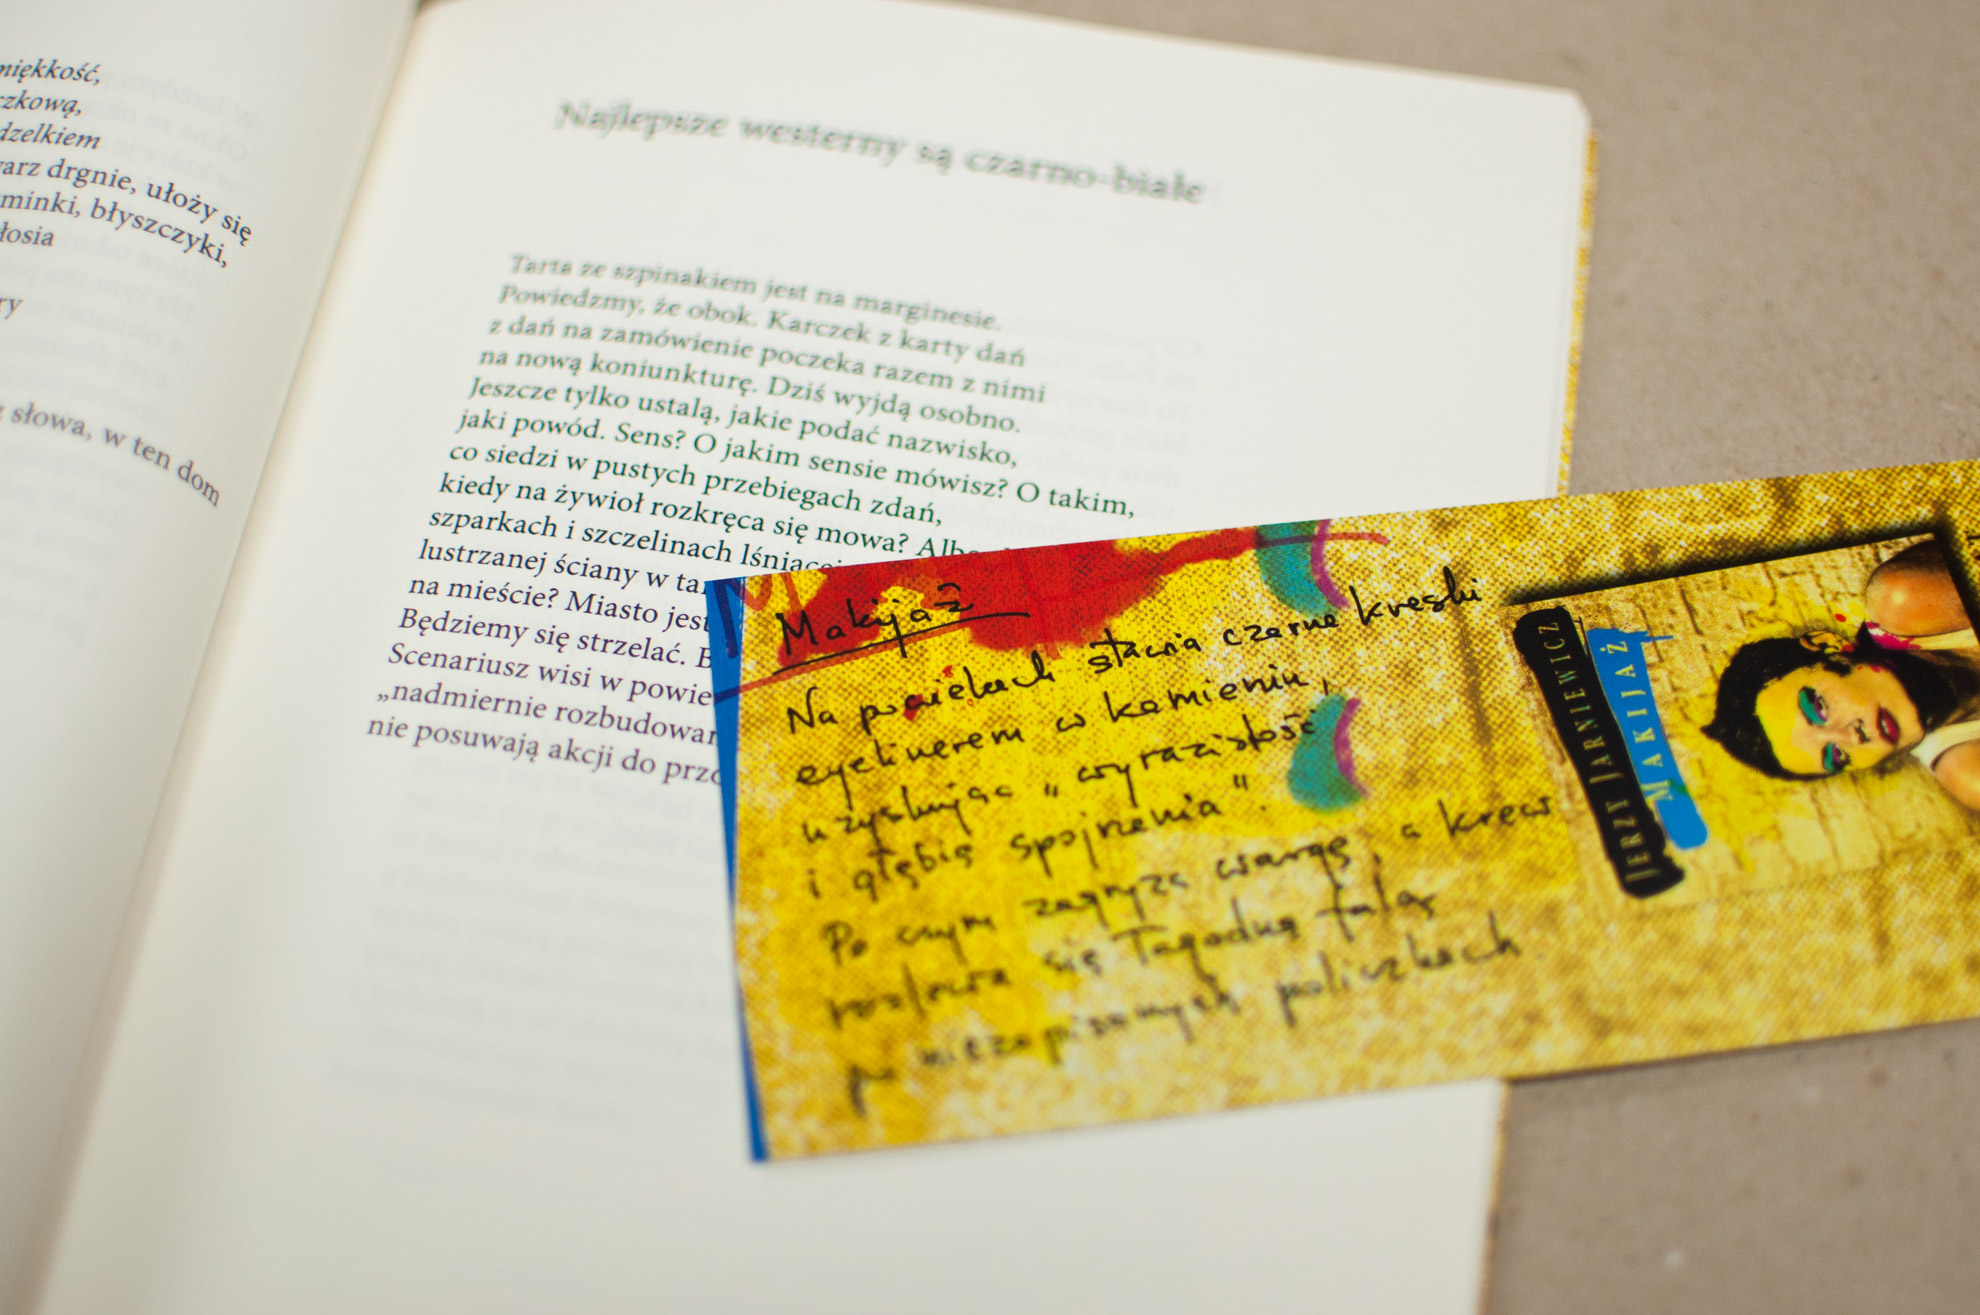 miękkość,
czkową,
dzelkiem
arz drgnie, ułoży się
minki, błyszczyki,
łosia
ry
z słowa, w ten dom
Najlepsze westerny są czarno-białe
Tarta ze szpinakiem jest na marginesie.
Powiedzmy, że obok. Karczek z karty dań
z dań na zamówienie poczeka razem z nimi
na nową koniunkturę. Dziś wyjdą osobno.
Jeszcze tylko ustalą, jakie podać nazwisko,
jaki powód. Sens? O jakim sensie mówisz? O takim,
co siedzi w pustych przebiegach zdań,
kiedy na żywioł rozkręca się mowa? Albo
szparkach i szczelinach lśniącej
lustrzanej ściany w ta
na mieście? Miasto jest
Będziemy się strzelać. B
Scenariusz wisi w powie
„nadmiernie rozbudowan
nie posuwają akcji do prz
Makijaż
Na powiekach stawia czarne kreski
eyelinerem w kamieniu,
uzyskując "wyrazistość
i głębię spojrzenia".
Po czym zagryza wargę, a krew
rozlewa się łagodną falą
po niezapisanych policzkach.
JERZY JARNIEWICZ
MAKIJAŻ